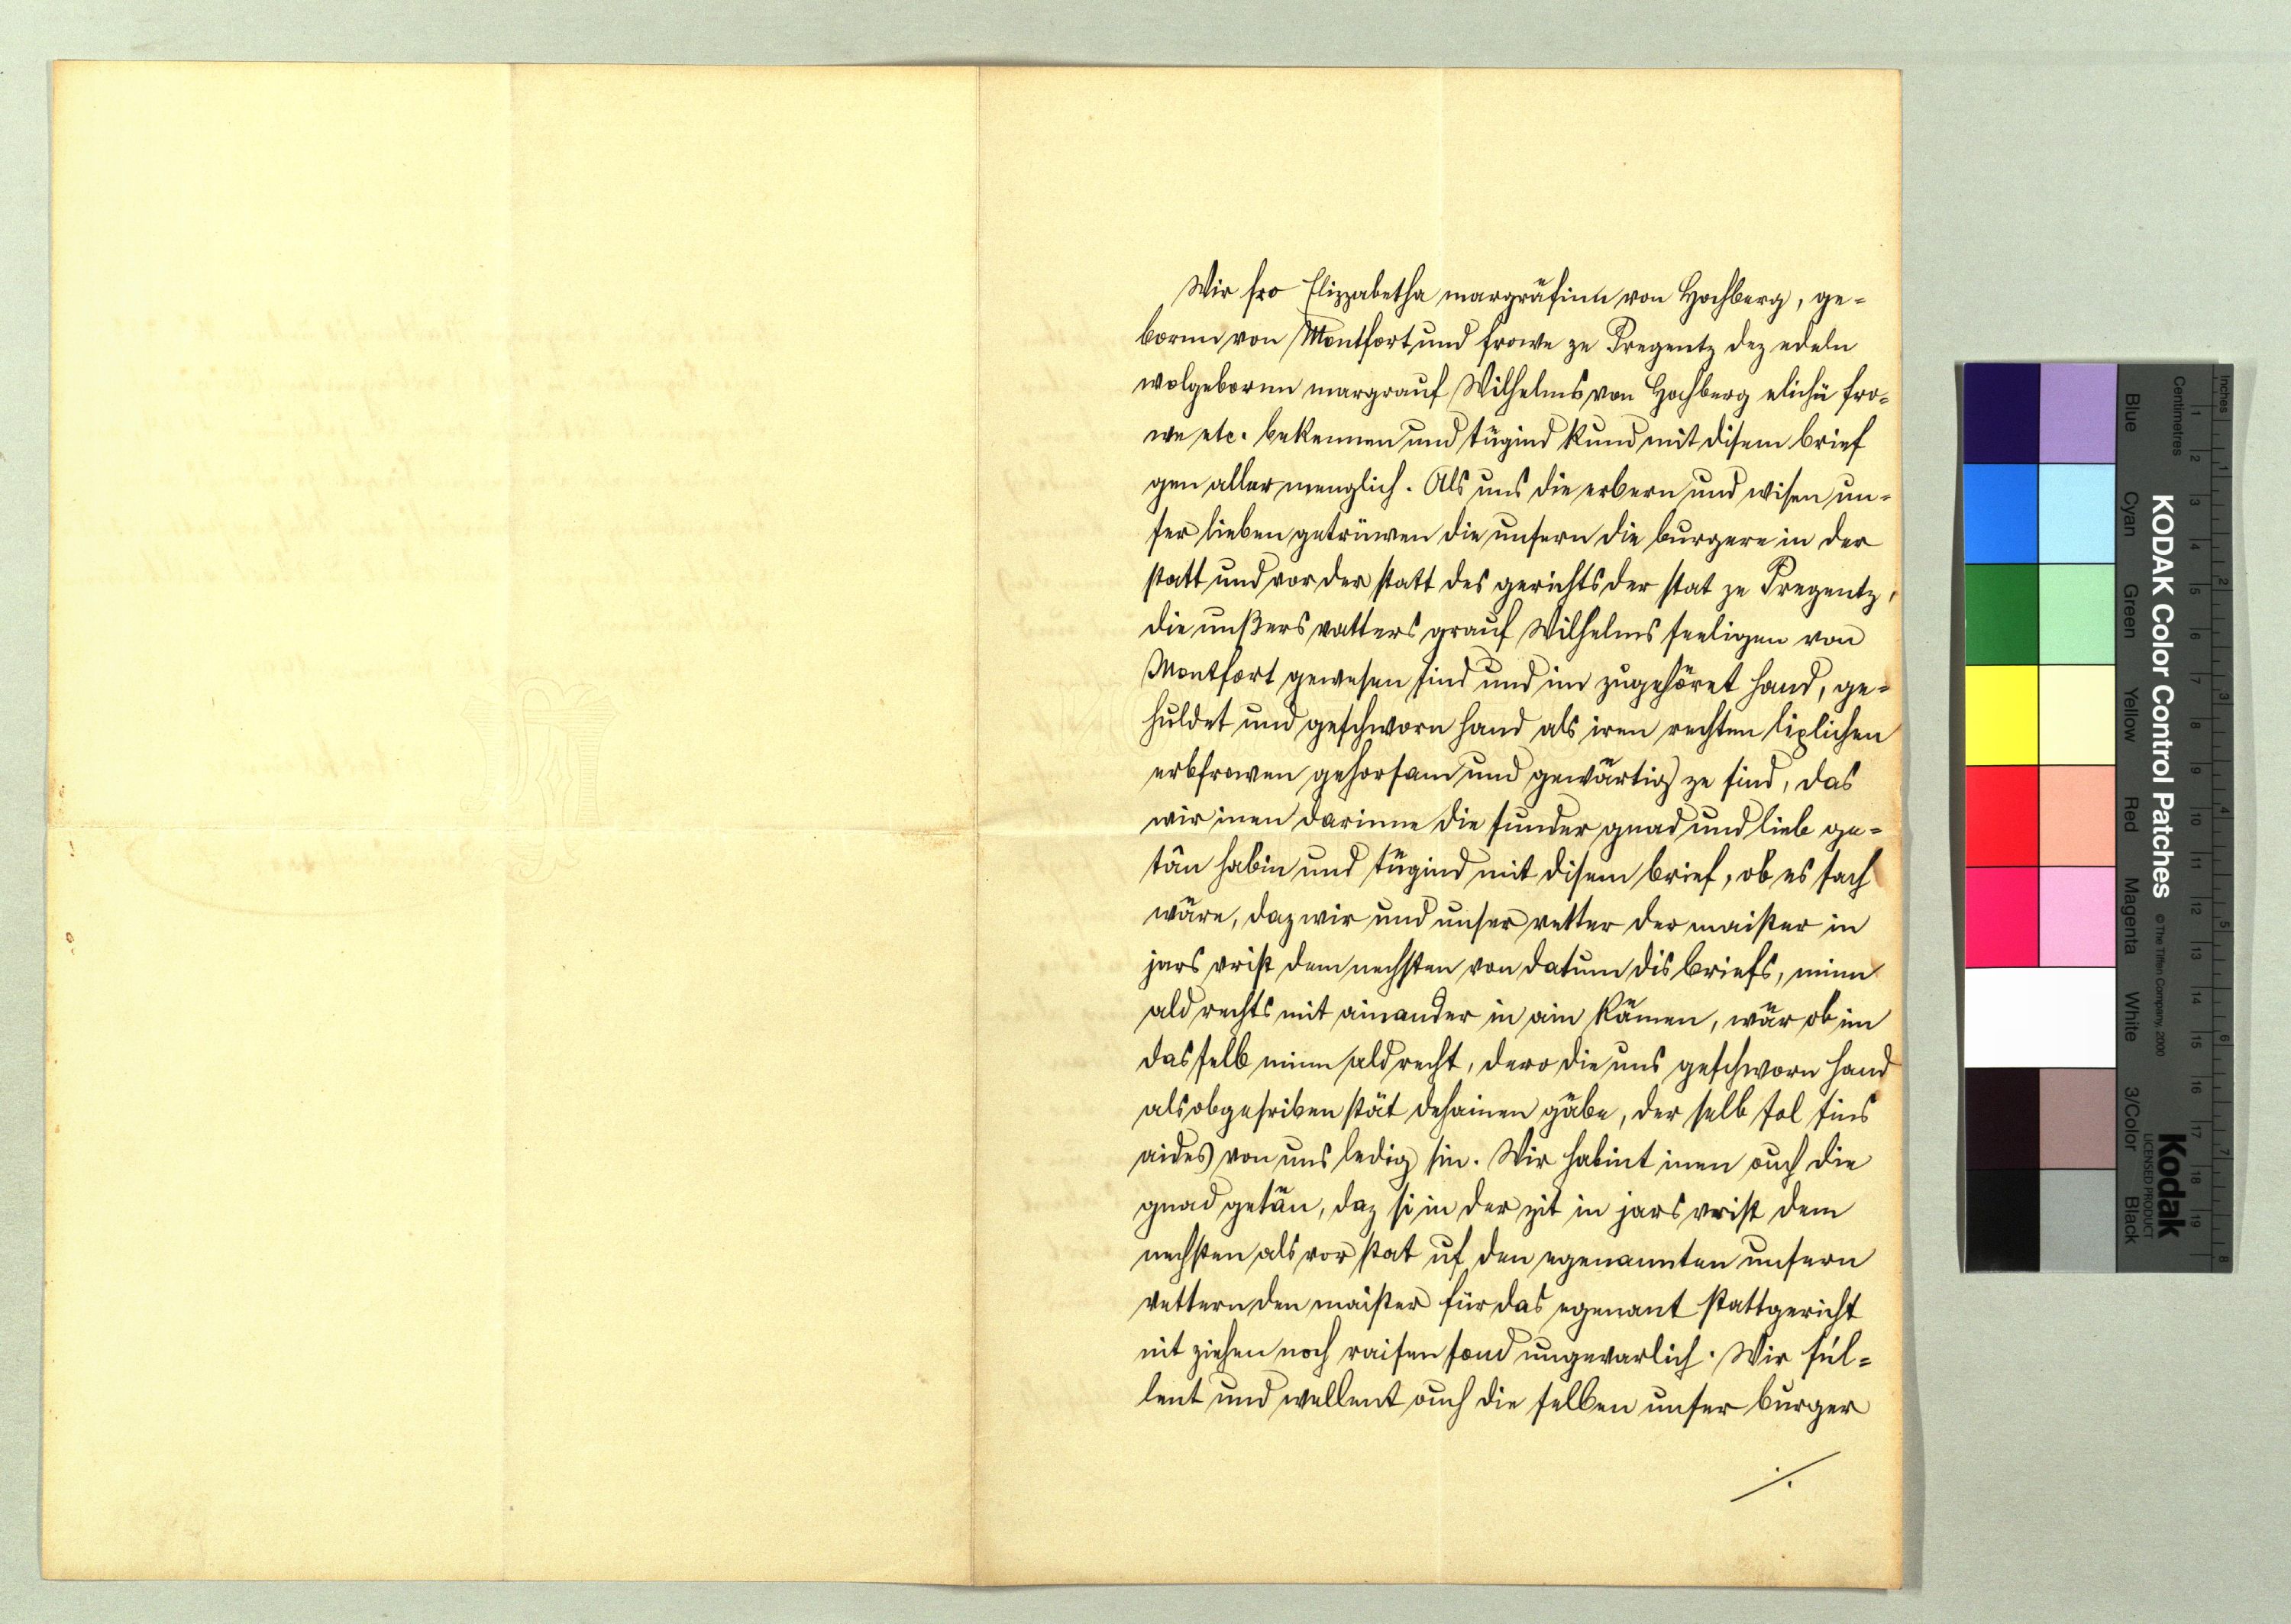 Wir fro Elizzabetha margräfinn von Hochberg, ge=
bornn von Montfort und frowe ze Pregentz dez edeln
wolgebornn margrauf Wilhelms von Hochberg elichü fro=
we etc. bekennen und tügind kund mit disem brief
gen allermenglich. Als uns die erbern und wisen un=
ser lieben getrüwen die unsern die burgere in der
statt und vor der statt des gerichts der stat ze Pregentz,
die unßers vatters grauf Wilhelms seeligen von
Montfort gewesen sind und im zugehöret hand, ge=
huldet und geschworn hand als iren rechten liplichen
erbfrowen gehorsam und gewärtig ze sind, das
wir inen darinne die sunder gnad und lieb ge=
tän habin und tügind mit disem brief, ob es sach
wäre, daz wir und unser vetter der maister in
jars vrist dem nechsten von datum dis briefs, minn
ald rechts mit ainander in ain kämen, wär ob im
das selb minn ald recht, dero die uns geschworn hand
als obgesriben stät dehainen gäbe, der selb sol sins
aides von uns ledig sin. Wir habint inen ouch die
gnad getän, daz si in der zit in jars vrist dem
nechsten als vor stat uf den egenannten unsern
vettern den maister für das egenant stattgericht
nit ziehen noch raisen sond ungevarlich. Wir sül=
lent und wellent ouch die selben unser burger
./.
KODAK Color Control Patches
© The Tiffen Company, 2000
Kodak
LICENSED PRODUCT
Inches
Centimetres
1 2 3 4 5 6 7 8
1 2 3 4 5 6 7 8 9 10 11 12 13 14 15 16 17 18 19
Blue
Cyan
Green
Yellow
Red
Magenta
White
3/Color
Black